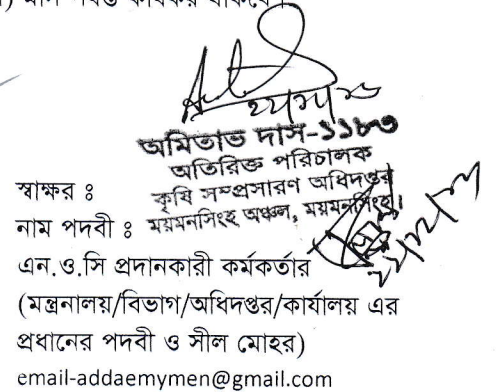 অমিতাভ দাস-১১৮৩
অতিরিক্ত পরিচালক
কৃষি সম্প্রসারণ অধিদপ্তর
ময়মনসিংহ অঞ্চল, ময়মনসিংহ।
স্বাক্ষর ঃ
নাম পদবী ঃ
এন.ও.সি প্রদানকারী কর্মকর্তার
(মন্ত্রনালয়/বিভাগ/অধিদপ্তর/কার্যালয় এর
প্রধানের পদবী ও সীল মোহর)
email-addaemymen@gmail.com